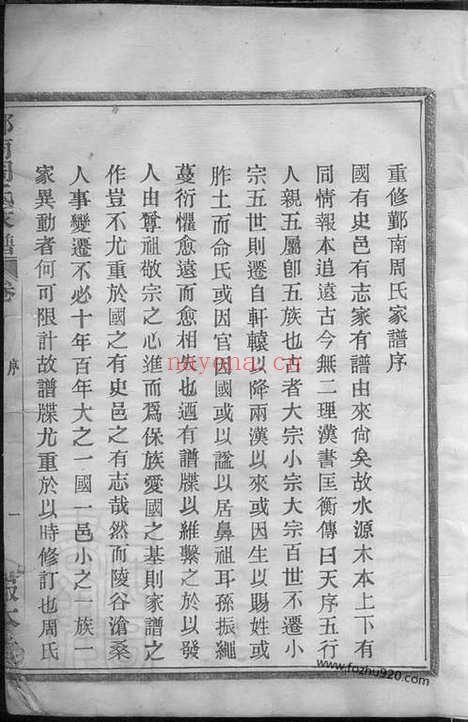 重修鄞南周氏家譜序
國有史邑有志家有譜由來尙矣故水源木本上下有
同情報本追遠古今無二理漢書匡衡傳曰天序五行
人親五屬卽五族也古者大宗小宗大宗百世不遷小
宗五世則遷自軒轅以降兩漢以來或因生以賜姓或
胙土而命氏或因官因國或以謚以居鼻祖耳孫振繩
蔓衍懼愈遠而愈相失也迺有譜牒以維繫之於以發
人由尊祖敬宗之心進而爲保族愛國之基則家譜之
作豈不尤重於國之有史邑之有志哉然而陵谷滄桑
人事變遷不必十年百年大之一國一邑小之一族一
家異動者何可限計故譜牒尤重於以時修訂也周氏
南周氏家譜
卷
序
一
nayona.cn
www.fozhu920.com